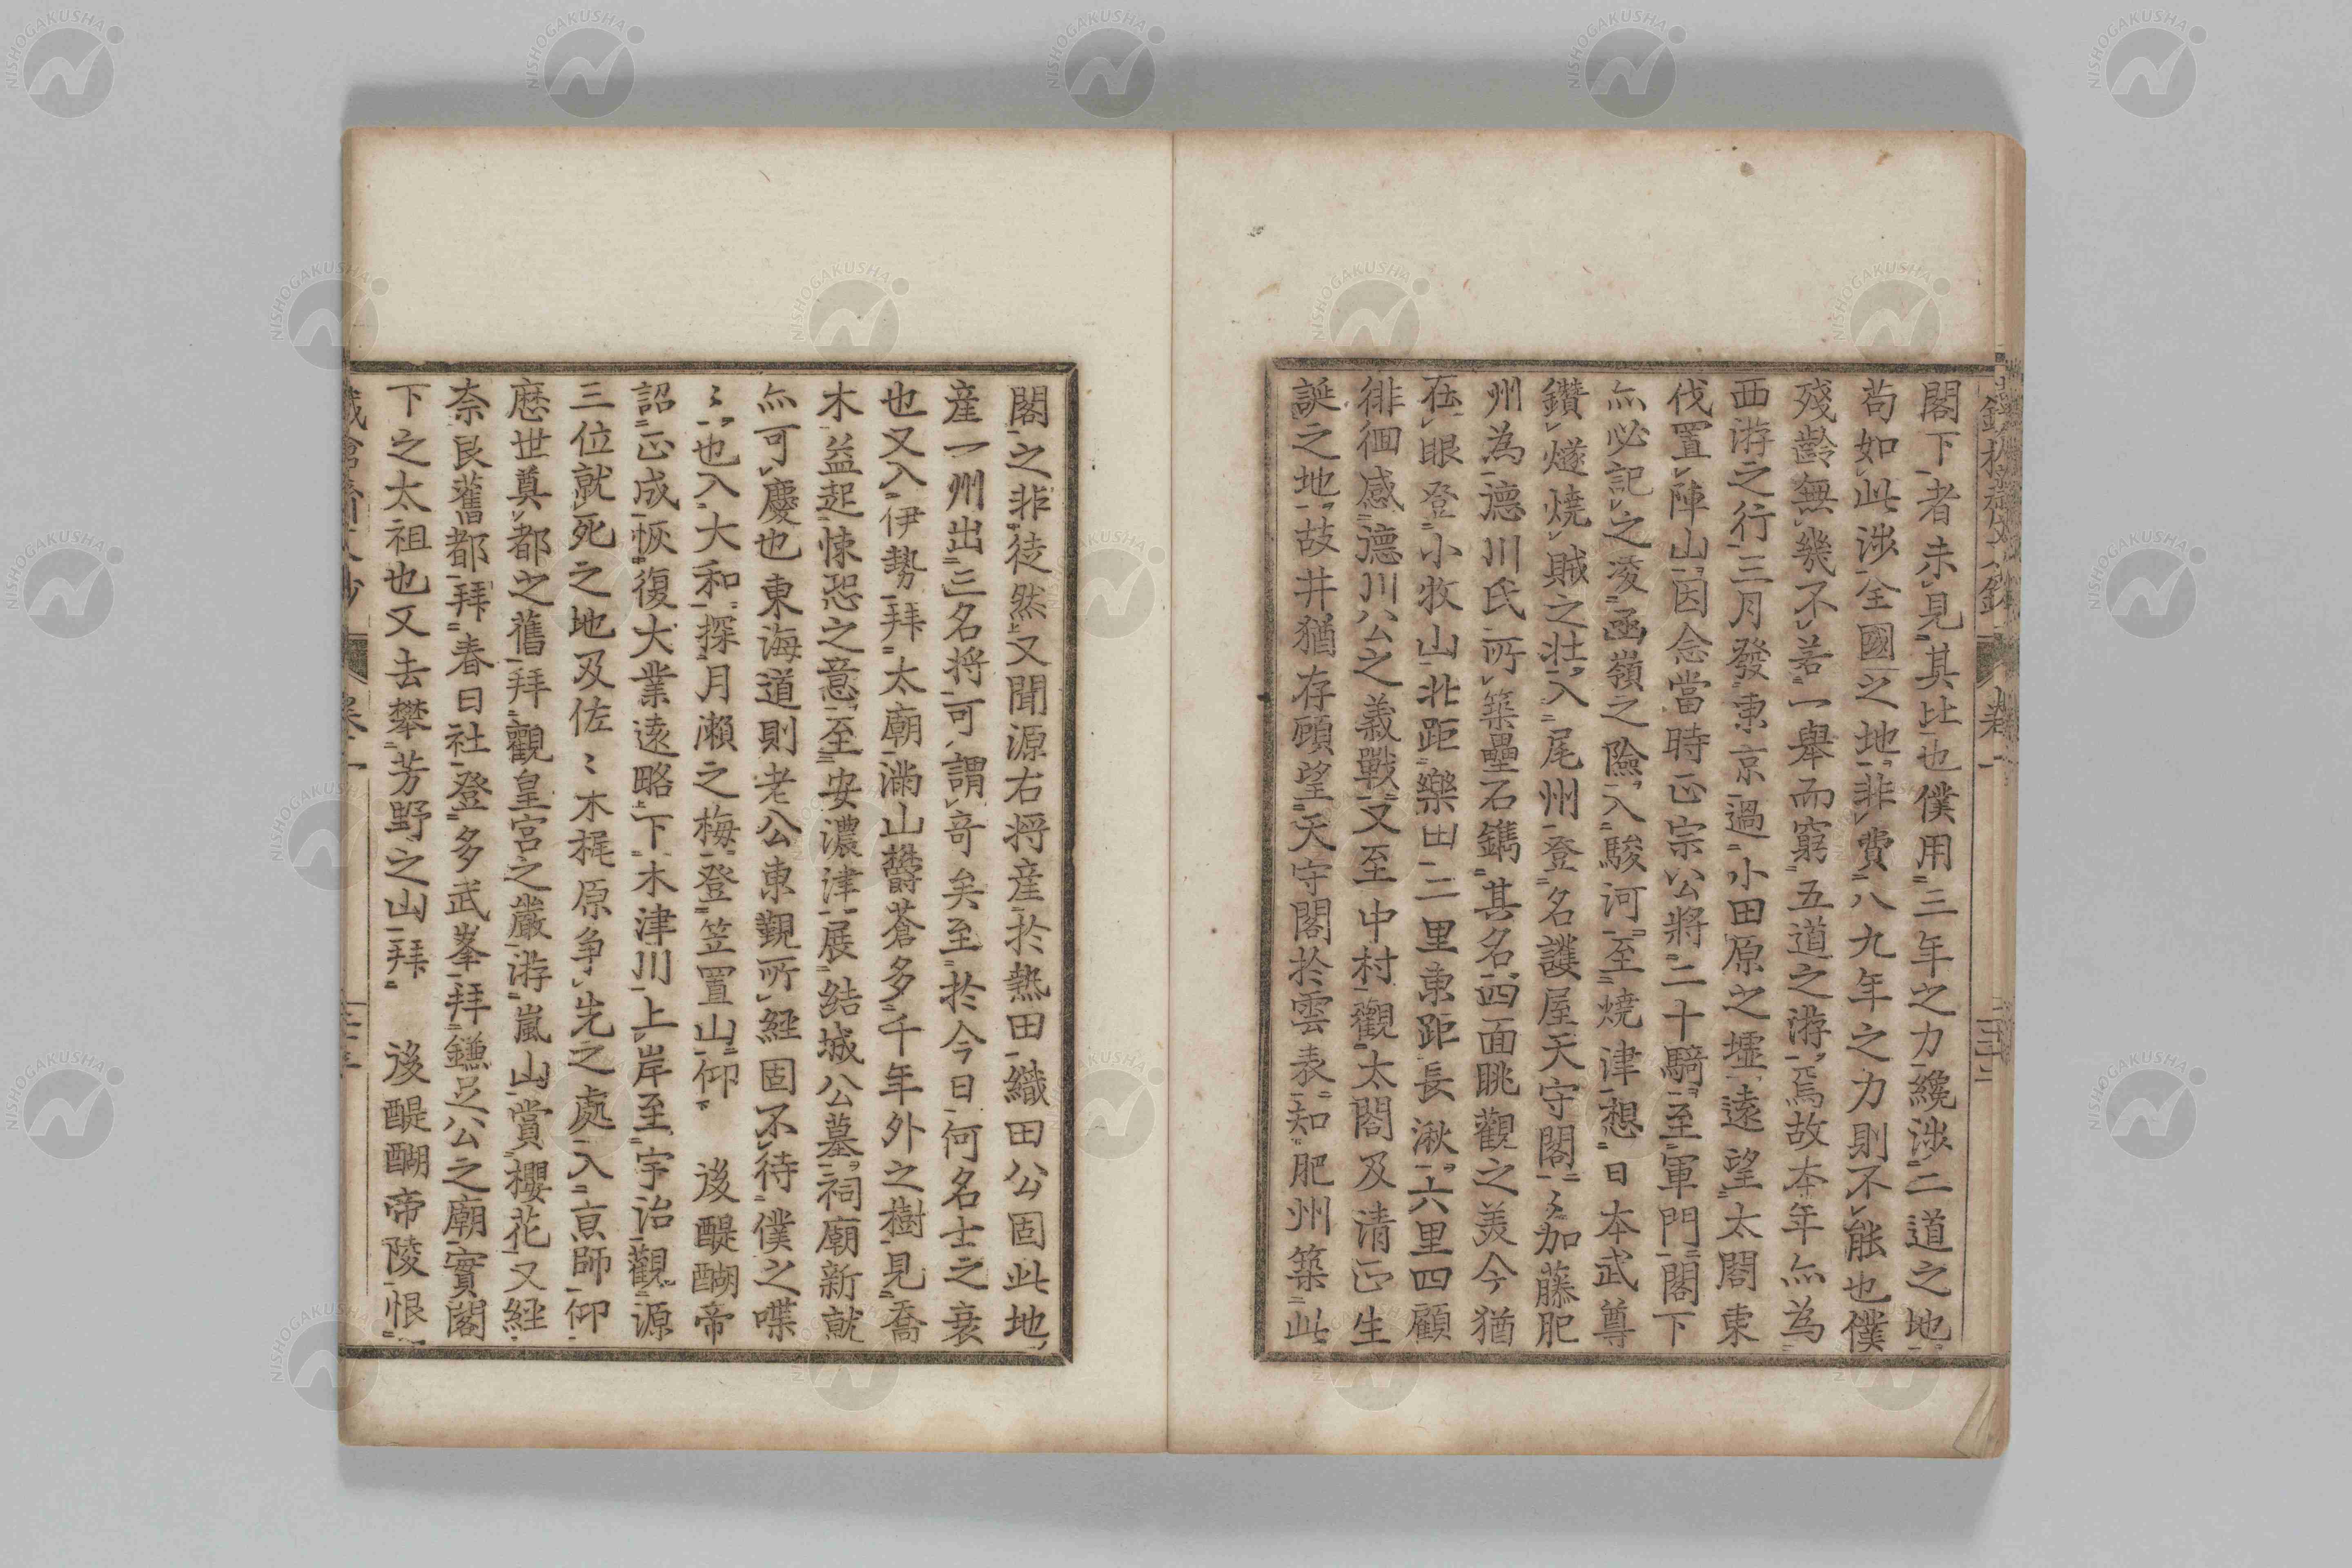 閣下者未見其比也僕用三年之力纔涉二道之地
苟如此涉全國之地非費八九年之力則不能也僕
殘齡無幾不若一擧而窮五道之游焉故本年亦為
西游之行三月發東京過小田原之墟遠望太閤東
伐置陣山因念當時正宗公將二十騎至軍門閣下
亦必記之凌函嶺之險入駿河至燒津想日本武尊
鑽燧燒賊之壯入尾州登名護屋天守閣〻加藤肥
州為德川氏所築壘石鐫其名四面眺觀之美今猶
在眼登小牧山北距樂田二里東距長湫六里四顧
徘徊感德川公之義戰又至中村觀太閤及清正生
誕之地故井猶存顧望天守閣於雲表知肥州築此
閣之非徒然又聞源右將産於熱田織田公固此地
産一州出三名將可謂奇矣至於今日何名士之衰
也又入伊勢拜太廟滿山欝蒼多千年外之樹見喬
木益起悚恐之意至安濃津展結城公墓祠廟新就
亦可慶也東海道則老公東覲所經固不待僕之喋
〻也入大和探月瀨之梅登笠置山仰 後醍醐帝
詔正成恢復大業遠略下木津川上岸至宇治觀源
三位就死之地及佐〻木梶原爭先之處入京師仰
歷世奠都之舊拜觀皇宮之嚴游嵐山賞櫻花又經
奈良舊都拜春日社登多武峯拜鎌足公之廟實閣
下之太祖也又去攀芳野之山拜 後醍醐帝陵恨
卷一
NISHOGAKUSHA